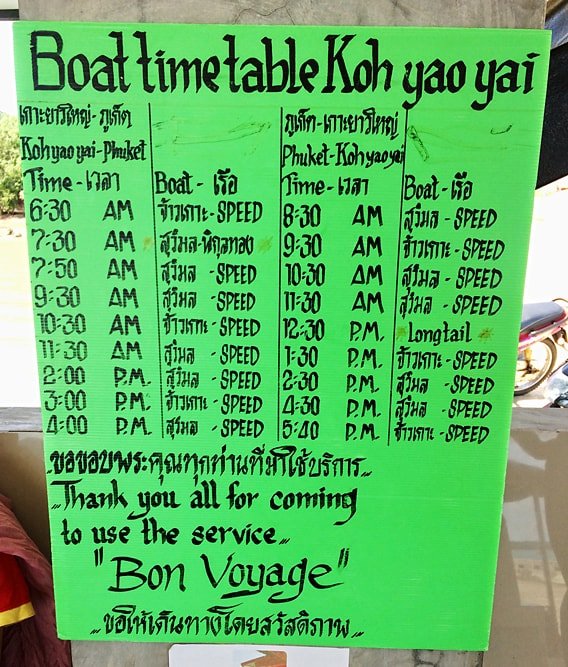 Boat timetable Koh yao yai
เกาะยาวใหญ่-ภูเก็ต ภูเก็ต-เกาะยาวใหญ่
Koh yao yai-Phuket Phuket-Koh yao yai
Time-เวลา Boat-เรือ Time-เวลา Boat-เรือ
6:30 AM จ้าวเกาะ-SPEED 8:30 AM สุวิมล-SPEED
7:30 AM สุวิมล-พิกุลทอง 9:30 AM จ้าวเกาะ-SPEED
7:50 AM สุวิมล-SPEED 10:30 AM สุวิมล-SPEED
9:30 AM สุวิมล-SPEED 11:30 AM สุวิมล-SPEED
10:30 AM จ้าวเกาะ-SPEED 12:30 P.M. Longtail
11:30 AM สุวิมล-SPEED 1:30 P.M. จ้าวเกาะ-SPEED
2:00 P.M. สุวิมล-SPEED 2:30 P.M. สุวิมล-SPEED
3:00 P.M. จ้าวเกาะ-SPEED 4:30 P.M. สุวิมล-SPEED
4:00 P.M. สุวิมล-SPEED 5:40 P.M. จ้าวเกาะ-SPEED
...ขอขอบพระคุณทุกท่านที่มาใช้บริการ...
...Thank you all for coming
to use the service...
"Bon Voyage"
...ขอให้เดินทางโดยสวัสดิภาพ...